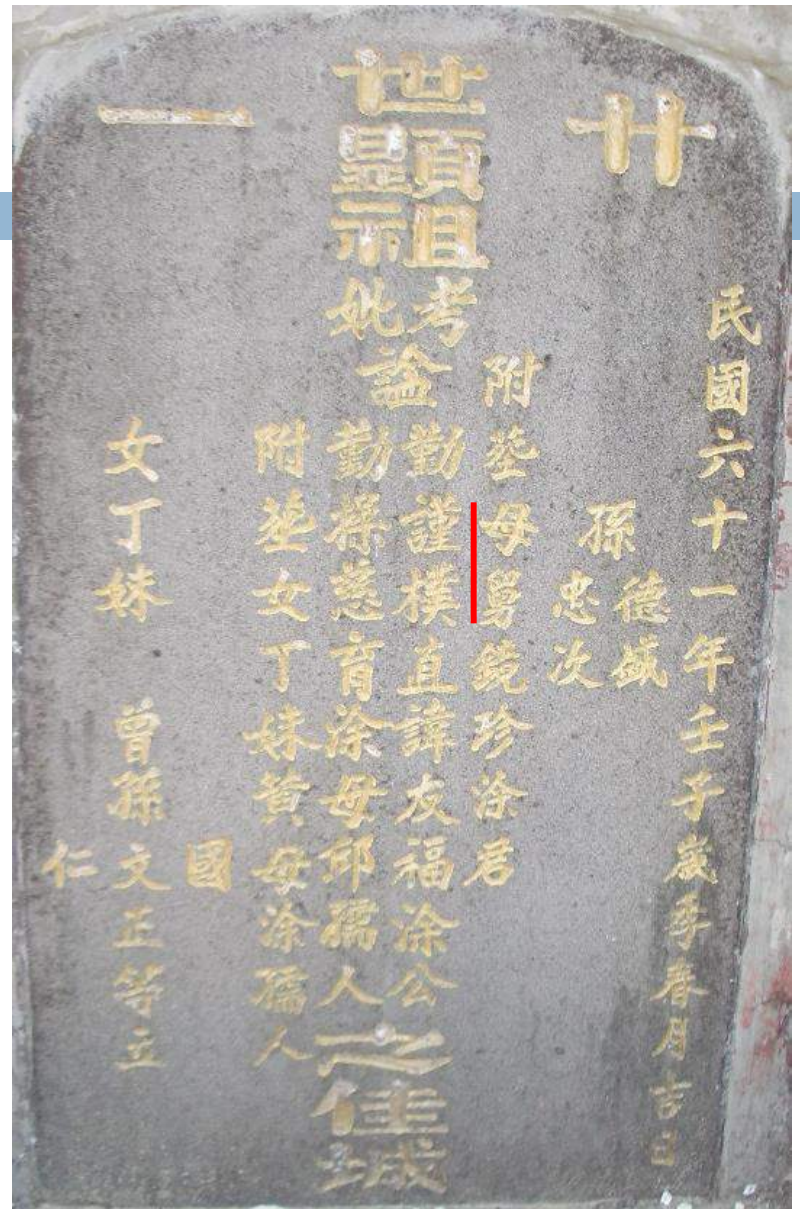 廿一世
民國六十一年壬子歲季春月吉日
孫德盛
忠次
附塋母舅鏡珍涂君
顯祖考妣諡
勤謹樸直諱友福涂公
勤操慈育涂母邱孺人
之佳城
附塋女丁妹黃母涂孺人
女丁妹 曾孫國文仁正等立